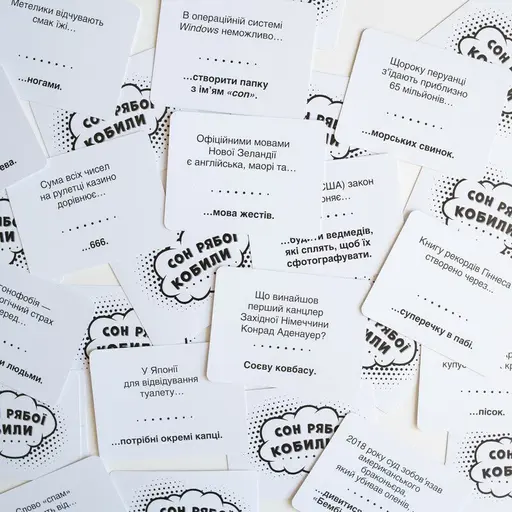 Метелики відчувають
смак їжі...
...ногами.
В операційній системі
Windows неможливо...
...створити папку
з ім'ям «con».
Щороку перуанці
з'їдають приблизно
65 мільйонів...
...морських свинок.
СОН РЯБОЇ
КОБИЛИ
Офіційними мовами
Нової Зеландії
є англійська, маорі та...
...мова жестів.
Сума всіх чисел
на рулетці казино
дорівнює...
...666.
(США) закон
...будити ведмедів,
які сплять, щоб їх
сфотографувати.
СОН РЯБОЇ
КОБИЛИ
СОН РЯБОЇ
КОБИЛИ
Книгу рекордів Гіннеса
створено через...
...суперечку в пабі.
Що винайшов
перший канцлер
Західної Німеччини
Конрад Аденауер?
Соєву ковбасу.
страх
людьми.
У Японії
для відвідування
туалету...
...потрібні окремі капці.
...пісок.
СОН РЯБОЇ
КОБИЛИ
СОН РЯБОЇ
КОБИЛИ
2018 року суд зобов'язав
американського
браконьєра,
який убивав оленів,
...дивитися
«Бембі
Слово «спам»